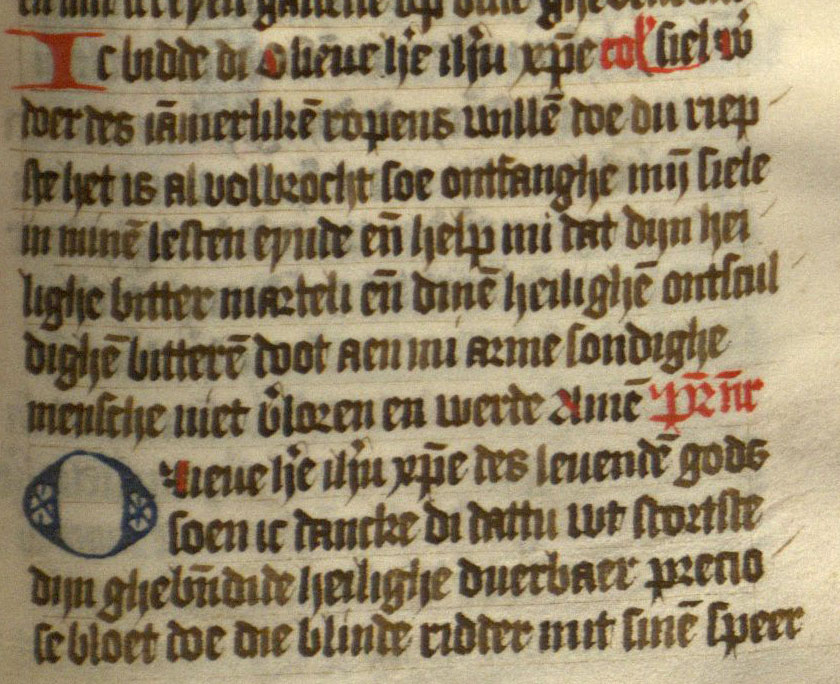 Ic bidde di O lieue h̅e ih̅u xp̅e col' siel w̅
doer des iāmerlikē ropens willē doe du riep
ste het is al volbrocht soe ontfanghe mij̄ siele
in minē lesten eynde en̄ help mi dat dijn hei
lighe bitter marteli en̄ dinē heilighē ontscul
dighē bitterē doot aen mi arme sondighe
mensche niet v̓loren en werde Amē pr̄ nr̄
O lieue h̅e ih̅u xp̅e des leuendē gods
soen ic dancke di dattu wt stortste
dijn ghebn̄dide heilighe duerbaer precio
se bloet doe die blinde ridder mit sinē speer